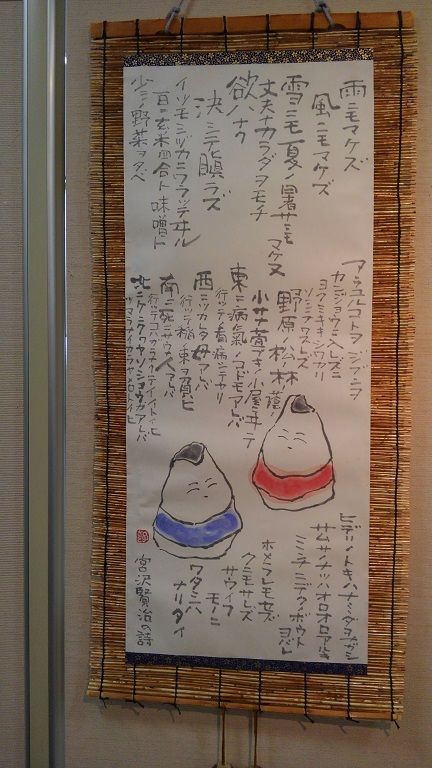 雨ニモマケズ
風ニモマケズ
雪ニモ夏ノ暑サニモ
マケヌ
丈夫ナカラダヲモチ
欲ハナク
決シテ瞋ラズ
イツモシヅカニワラッテヰル
一日ニ玄米四合ト味噌ト
少シノ野菜ヲタベ
アラユルコトヲジブンヲ
カンジョウニ入レズニ
ヨクミキキシワカリ
ソシテワスレズ
野原ノ松林ノ蔭ノ
小サナ萱ブキノ小屋ヰテ
東ニ病氣ノコドモアレバ
行ッテ看病シテヤリ
西ニツカレタ母アレバ
行ッテ稲ノ束ヲ負ヒ
南ニ死ニサウナ人アレバ
行ッテコハガラナクテモイヽトイヒ
北ニケンクヮヤソショウガアレバ
ツマラナイカラヤメロトイヒ
ヒデリノトキハナミダヲナガシ
サムサノナツハオロオロアルキ
ミンナニデクノボウト
ヨバレ
ホメラレモセズ
クニモサレズ
サウイフ
モノニ
ワタシハ
ナリタイ
宮沢賢治の詩